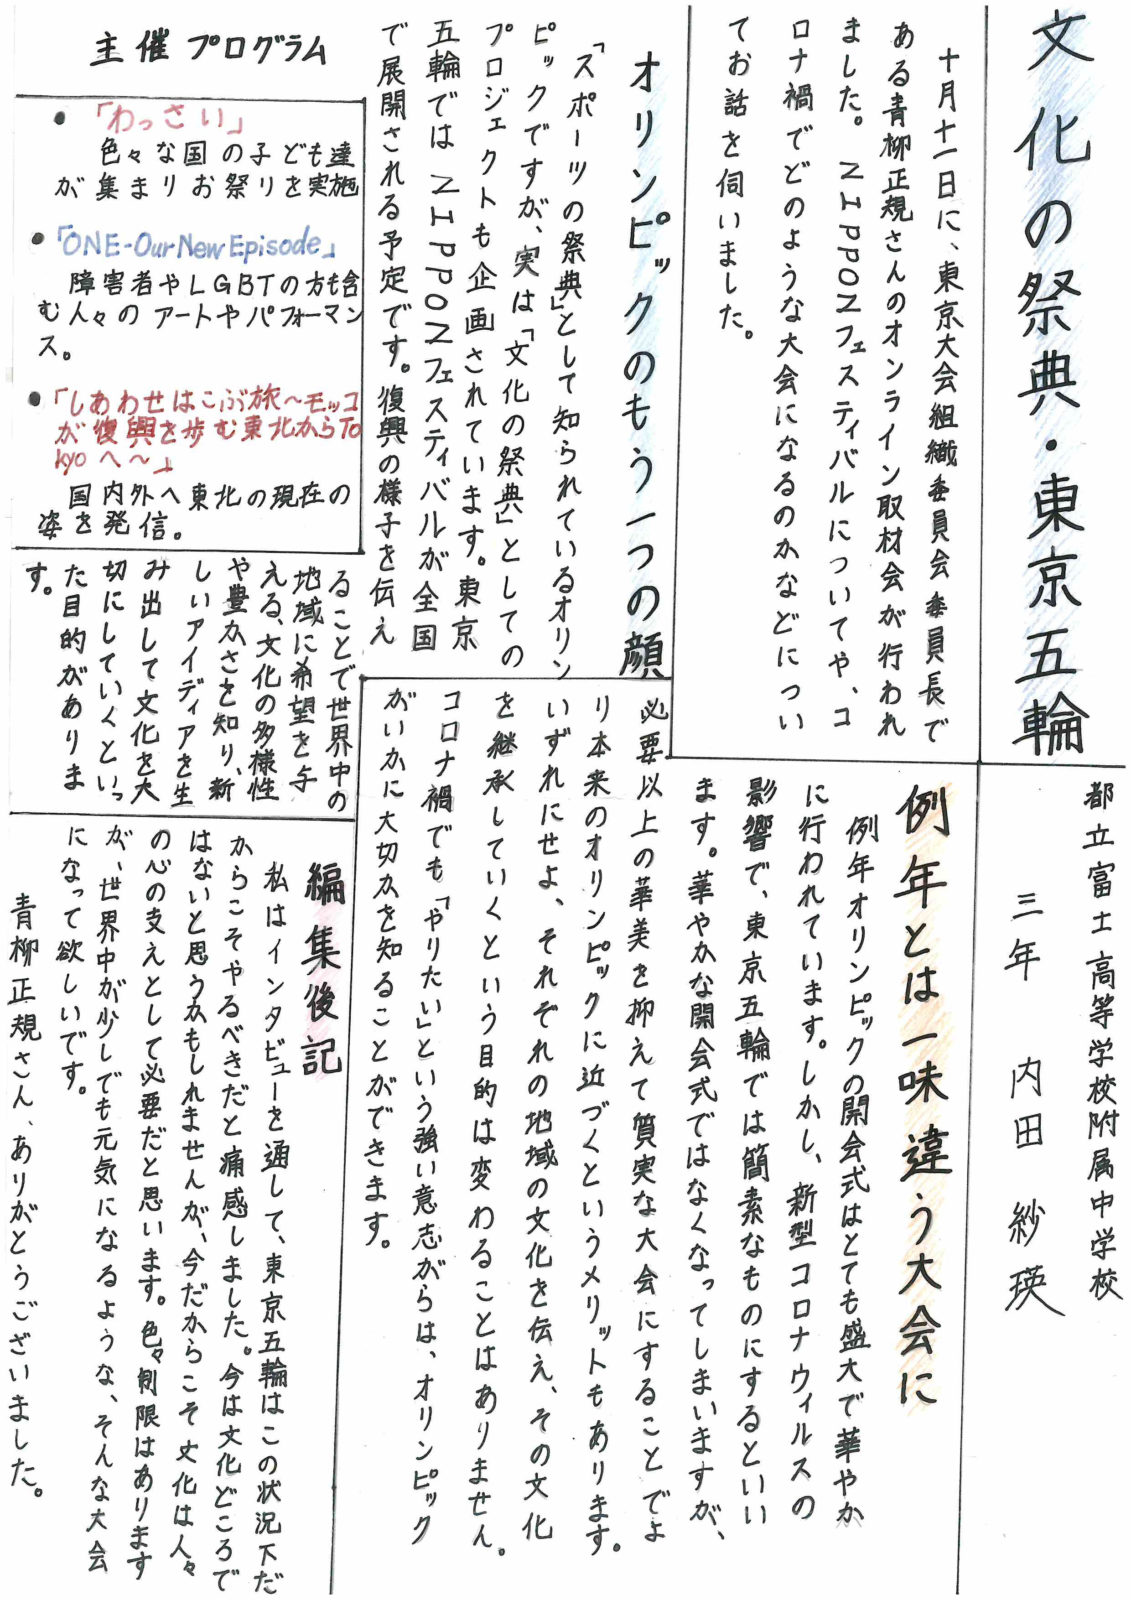 文化の祭典・東京五輪
都立富士高等学校附属中学校
三年 内田 紗瑛
十月十一日に、東京大会組織委員会委員長で
ある青柳正規さんのオンライン取材会が行われ
ました。NIPPONフェスティバルについてや、コ
ロナ禍でどのような大会になるのかなどについ
てお話を伺いました。
オリンピックのもう一つの顔
「スポーツの祭典」として知られているオリン
ピックですが、実は「文化の祭典」としての
プロジェクトも企画されています。東京
五輪ではNIPPONフェスティバルが全国
で展開される予定です。復興の様子を伝え
ることで世界中の
地域に希望を与
える、文化の多様性
や豊かさを知り、新
しいアイディアを生
み出して文化を大
切にしていくといっ
た目的がありま
す。
主催プログラム
•「わっさい」
色々な国の子ども達
が集まりお祭りを実施
•「ONE-Our New Episode」
障害者やLGBTの方も含
む人々のアートやパフォーマン
ス。
•「しあわせはこぶ旅～モッコ
が復興を歩む東北からTo
kyoへ～」
国内外へ東北の現在の
姿を発信。
例年とは一味違う大会に
例年オリンピックの開会式はとても盛大で華やか
に行われています。しかし、新型コロナウィルスの
影響で、東京五輪では簡素なものにするといい
ます。華やかな開会式ではなくなってしまいますが、
必要以上の華美を抑えて質実な大会にすることでよ
り本来のオリンピックに近づくというメリットもあります。
いずれにせよ、それぞれの地域の文化を伝え、その文化
を継承していくという目的は変わることはありません。
コロナ禍でも「やりたい」という強い意志がらは、オリンピック
がいかに大切かを知ることができます。
編集後記
私はインタビューを通して、東京五輪はこの状況下だ
からこそやるべきだと痛感しました。今は文化どころで
はないと思うかもしれませんが、今だからこそ文化は人々
の心の支えとして必要だと思います。色々制限はあります
が、世界中が少しでも元気になるような、そんな大会
になって欲しいです。
青柳正規さん、ありがとうございました。